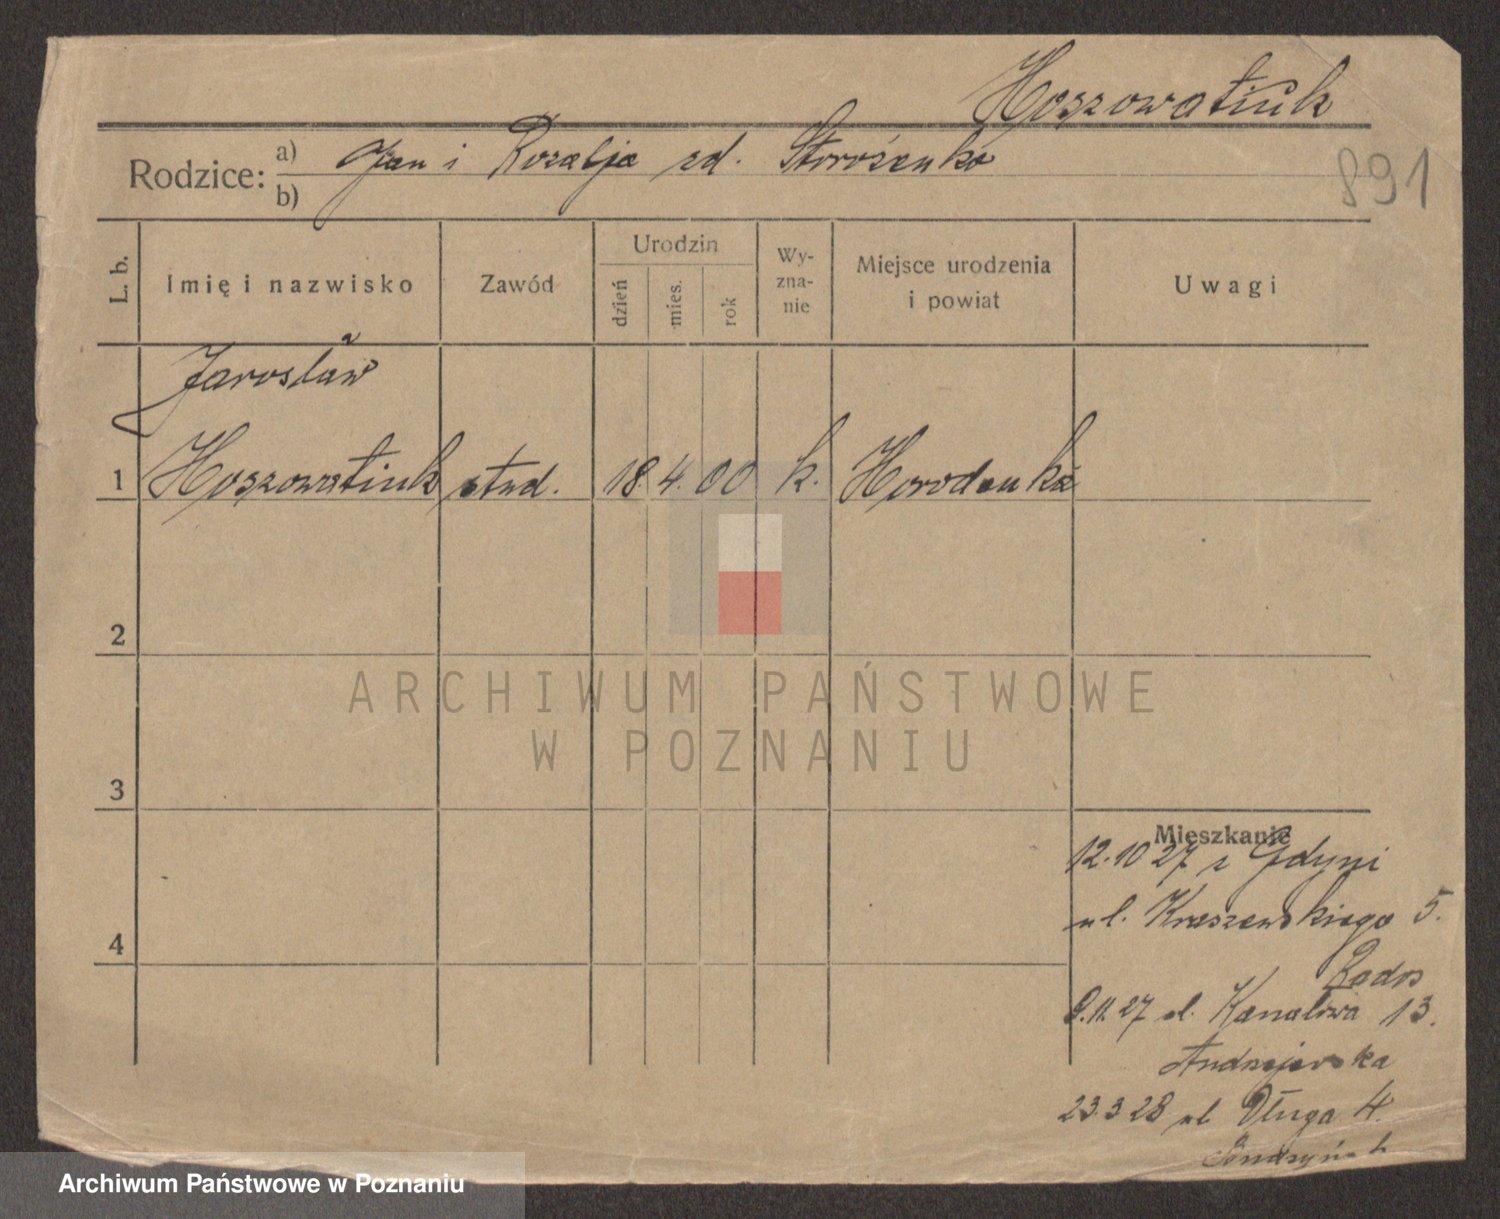 Hoszowatiuk
Rodzice: a) Jan i Rozalja zd. Storożenko
b)
891
L. b. Imię i nazwisko Zawód Urodzin dzień mies. rok Wyzna-nie Miejsce urodzenia i powiat Uwagi
Jarosław
1 Hoszowatiuk stud. 18. 4. 00 k. Horodenka
2
ARCHIWUM PAŃSTWOWE
W POZNANIU
3
Mieszkanie
12.10 27 z Gdyni
ul. Kraszewskiego 5.
9.11.27 ul. Kanałowa 13.
Andrzejewska
4
23.3 28 ul Długa 4.
Archiwum Państwowe w Poznaniu